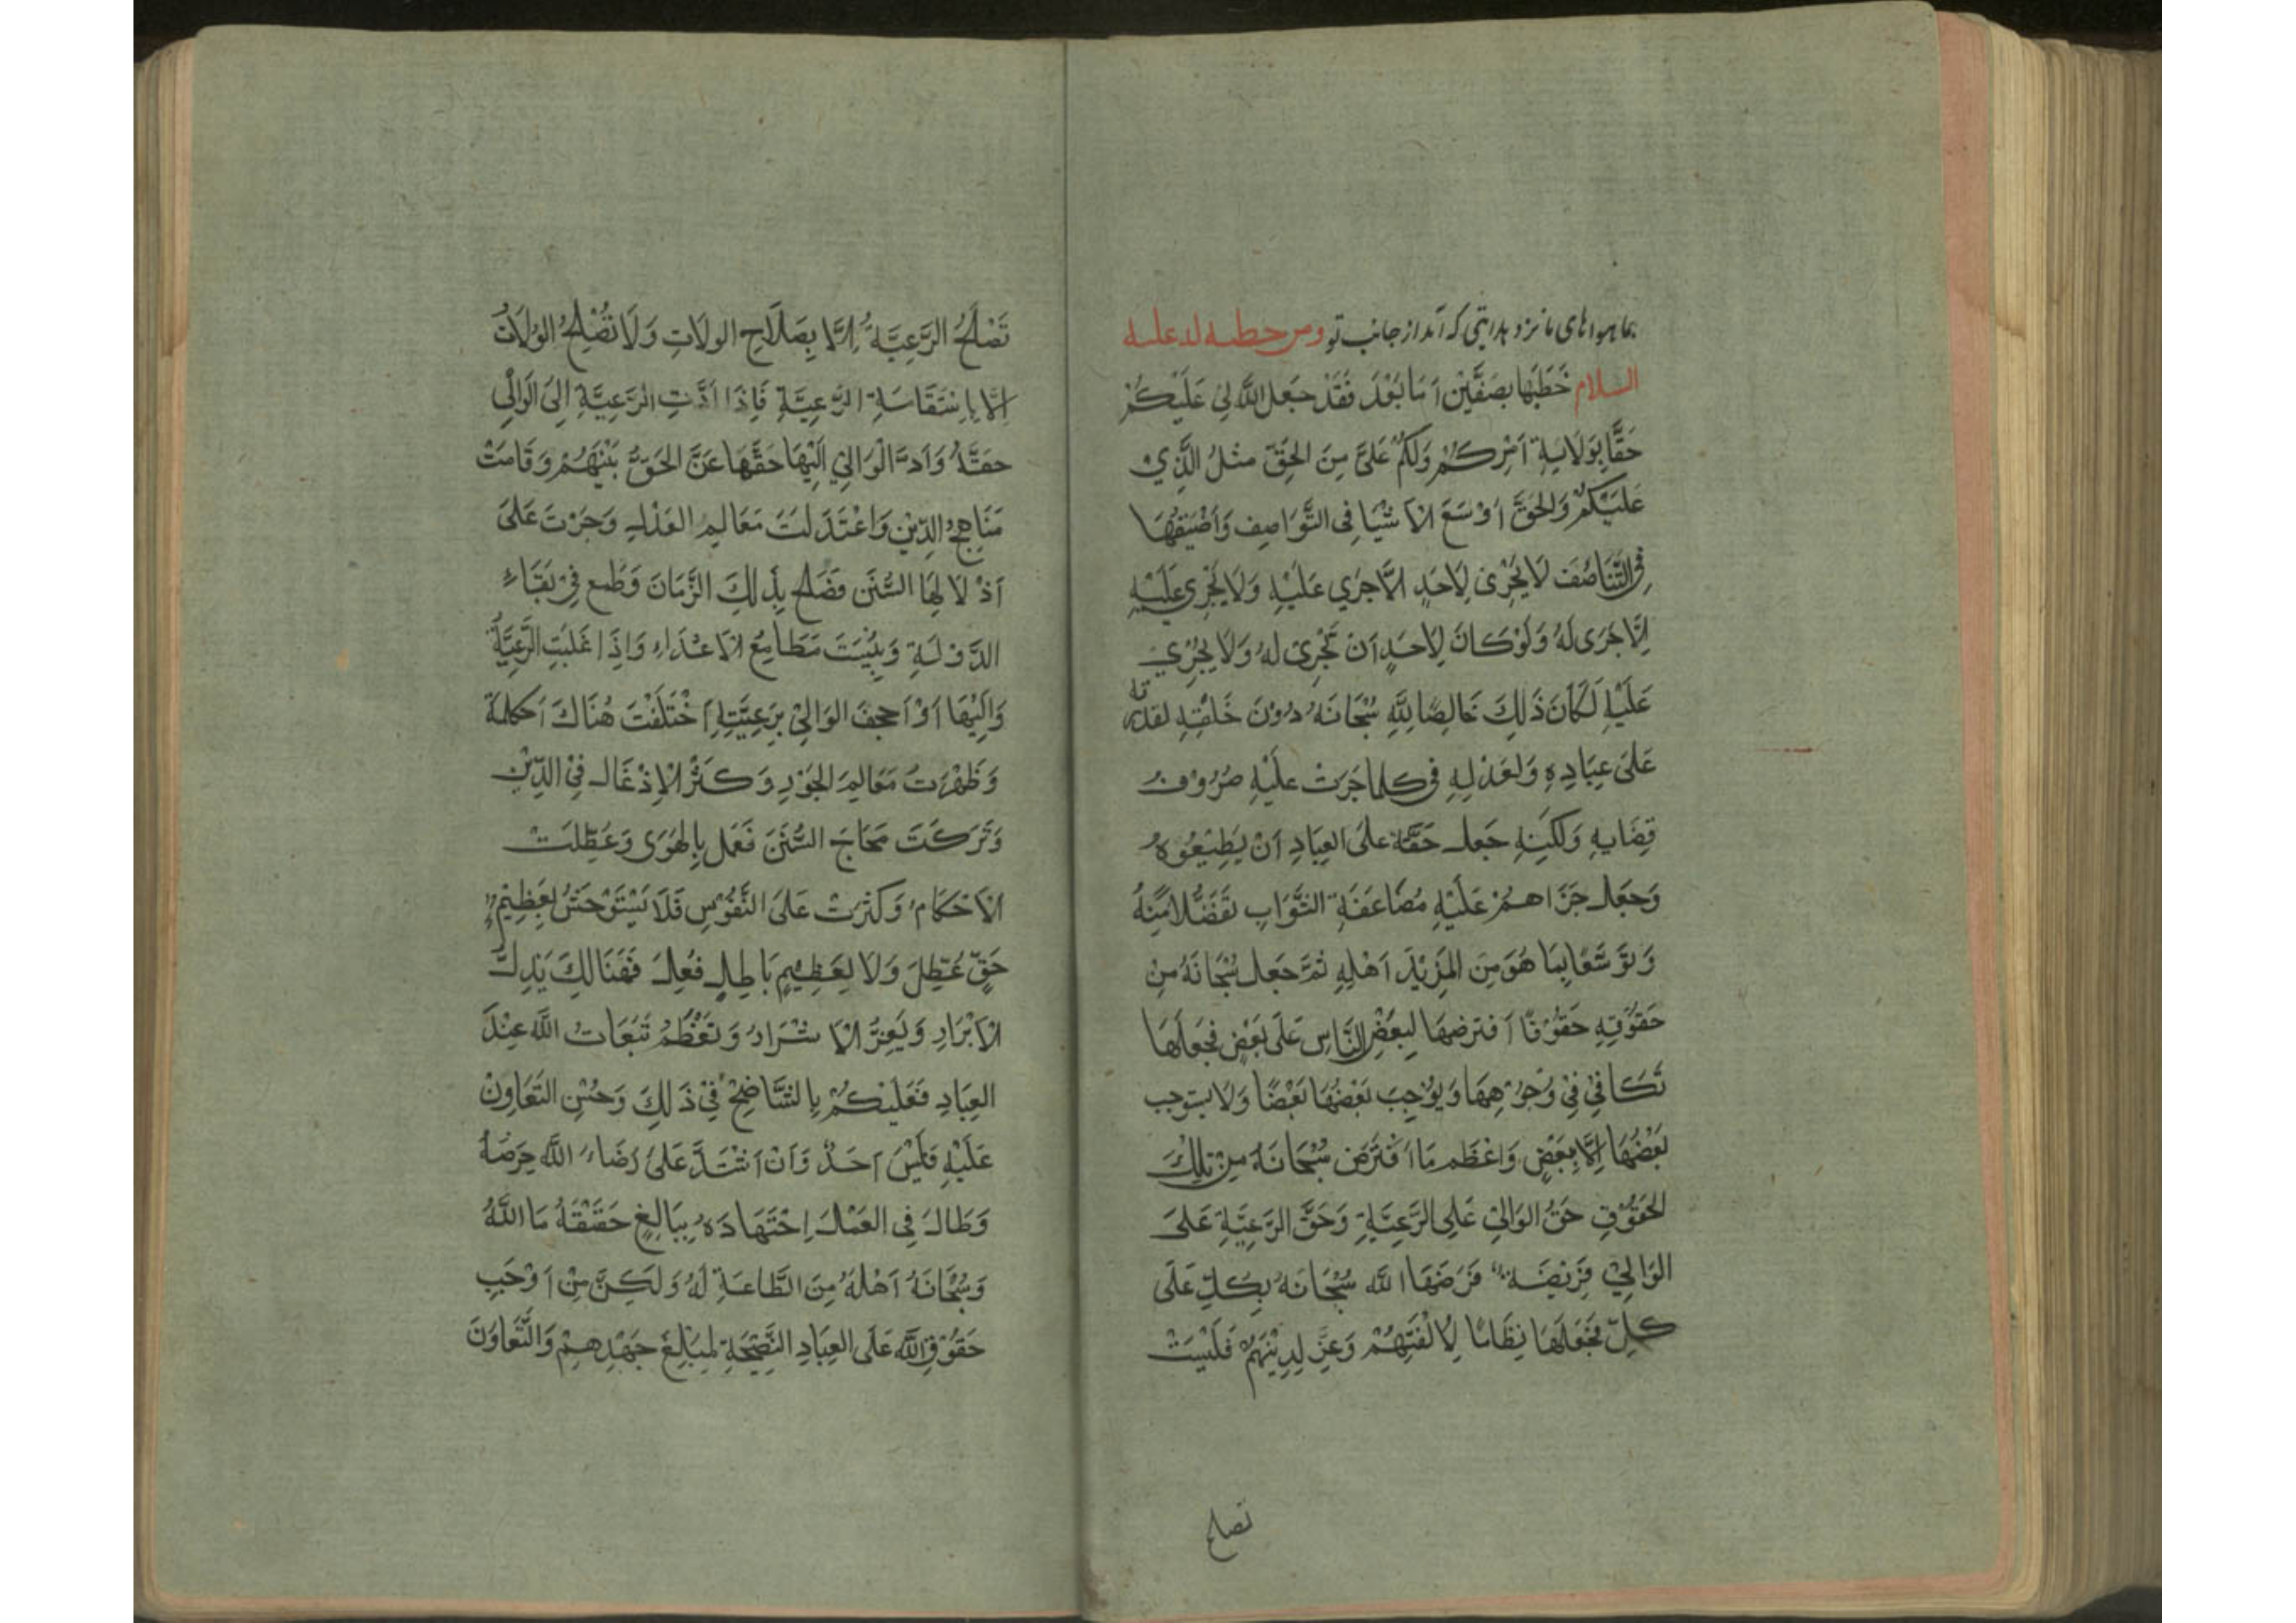 بما هواهای ما نزد هدایتی که آمد از جانب تو ومن خطبه له علیه
السلام خَطَبَها بِصَفَّيْن اَمَا بَعْدَ فَقَدْ جَعَلَ اللَّهُ لِیْ عَلَيْكُمْ
حَقًّا بِوَلَايَةِ اَمْرِكُمْ وَلَكُمْ عَلَیَّ مِنَ الحَقِّ مِثْلُ الَّذِي
عَلَيْكُمْ وَالحَقُّ اَوْسَعَ الاَشْيَا فِی التَّوَاصِفِ وَاَضْيَقُهَا
فِی التَّنَاصُفِ لَا يَجْرِیْ لِاَحَدٍ اِلَّا جَرَي عَلَيْهِ وَلَا يَجْرِي عَلَيْهِ
اِلَّا جَرَی لَهُ وَلَوْ كَانَ لِاَحَدٍ اَنْ تَجْرِیَ لَهُ وَلَا يَجْرِيْ
عَلَيْهِ لَكَانَ ذَلِكَ خَالِصًا لِلَّهِ سُبْحَانَهُ دُوْنَ خَلْقِهِ لقدرته
عَلَی عِبَادِهِ وَلِعَدْلِهِ فی كلما جَرَتْ عَلَيْهِ صُرُوْفُ
قِضَايهِ وَلَكِنِه جَعلَ حَقَّهُ عَلَی العِبَادِ اَنْ يُطِيْعُوْهُ
وَجَعَلَ جَزَاهُمْ عَلَيْهِ مُضَاعَفَةَ الثَّوَابِ تَفَضُّلًا مِنْهُ
وَتَوَسُّعًا بِمَا هُوَ مِنَ المَزِيْدَ اَهْلِهِ ثُمَّ جَعلَ سُبْحَانَهُ مِنْ
حَقُوْقِهِ حَقُوْقًا اَفترضهَا لِبَعْضِ النَّاسِ عَلَی بَعْضٍ فَجَعَلَهَا
تَكَافیْ فِیْ وُجُوْهِهَا وَيُوْجِبَ بَعْضُهَا بَعْضًا وَلَا يستوجب
بَعْضُهَا اِلَّا بِبَعْضٍ وَاعْظَم مَا افْتَرَضَ سُبْحَانَهُ مِنْ تِلْكَ
الحَقُوْقِ حَقُ الوَالِیْ عَلَی الرَّعِيَّةِ وَحَقَّ الرَّعِيَّةِ عَلَی
الوَالِیْ فَرِيْضَةً فَرَضَهَا اللَّه سُبْحَانَهُ بِكلٍّ عَلَی
كلٍّ فَجَعَلَهَا نِظَامًا لِاُلْفَتِهِمْ وَعِزِّ لِدِيْنِهِمْ فَلَيْسَتْ
تصلح
تَصْلَحُ الرَّعِيَّةُ اِلَّا بِصَلَاحِ الولَاتِ وَلَا تُصْلِحُ الوُلَاتُ
اِلَّا بِاِسْتَقَامَةِ الرَّعِيَّةِ فَاِذَا اَدَّتِ الرَّعِيَّةِ اِلَی الوَالِی
حقَّهُ وَاَدَّ الْوَالِي اِلَيْهَا حَقَّهَا عَزَّ الحَقُّ بَيْنَهُمْ وَقَامَتْ
مَنَاهِجُ الدِّيْنِ وَاعْتَدَلَتَ مَعَالِمِ العَدْلِ وَجَرَتَ عَلَی
اَذْلَالِهَا السُّنَن فَصَلح بِذَلِكَ الزَّمَانَ وَطُمِع فِیْ بَقَاءِ
الدَّوْلَةِ وَيئِسَتَ مَطَامِعُ الاَعْدَاءِ وَاِذَا غَلَبَتِ الرَّعِيَّةُ
وَالِيْهَا اَوْ اَجحِفَ الوَالِیْ بِرَعِيَّتِهِ اَخْتَلَفَتَ هُنَاكَ اَكلمَةَ
وَظَهْرَتُ مَعَالِمَ الجَوْرِ وَكَثُرَ الْاِدْغَالَ فِی الدِّيْنِ
وَتَرَكَتَ مَحَاجَ السُّنَنَ فَعُمل بِالهَوَی وَعَطِلَتْ
الْاَحْكَامُ وَكثرَتْ عَلَی النَّفُوْسِ فَلَا يَسْتَوْحَشُ بِعَظِيْمِ
حَقٍّ عُطِلَ وَلَا لِعَظِيْمٍ بَاطِلٍ فُعِلَ فَهُنَالِكَ يَذِلَّ
الْاَبْرَارِ وَيَعِزُّ الْاَشْرَارُ وَتَعْظُمُ تَبَعَاتُ اللَّه عِنْدَ
العِبَادِ فَعَلَيْكُمْ بِالتَّنَاصُحْ فِیْ ذَلِكَ وَحُسْنِ التَّعَاوِنْ
عَلَيْهِ فَلَيْسَ اَحَدٌ وَاَنْ اَشْتَدَّ عَلَی رَضَاءِ اللَّه حِرْصُهُ
وَطَالَ فِی العَمْلَ اِجْتَهَادَهُ بِبَالِغٍ حَقَيْقَةُ مَا اللَّهُ
وَسُبْحَانَهُ اَهْلُهُ مِنَ الطَّاعَةِ لَهُ وَلَكِنَّ مِنْ اَوْجَبِ
حَقُوْقِ اللَّه عَلَی العِبَادِ النَّصِيْحَةِ لِمَبْلِغَ جَهْدِهِمْ وَالتَّعَاوُنَ